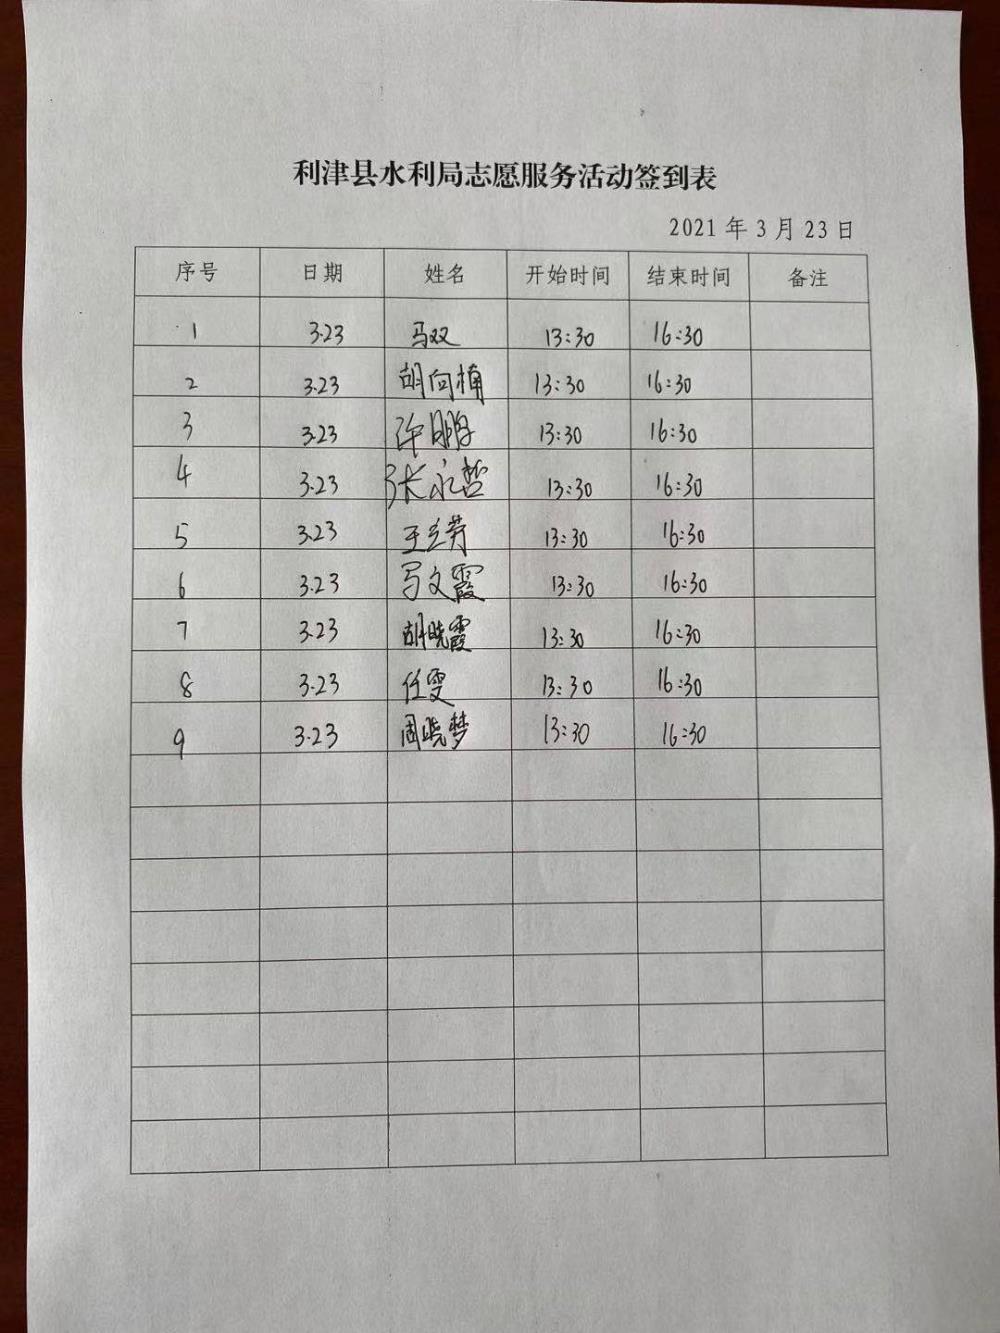 利津县水利局志愿服务活动签到表
2021 年 3 月 23 日
序号 日期 姓名 开始时间 结束时间 备注
1 3.23 马双 13:30 16:30
2 3.23 胡向楠 13:30 16:30
3 3.23 许鹏 13:30 16:30
4 3.23 张永哲 13:30 16:30
5 3.23 王兰芳 13:30 16:30
6 3.23 马文霞 13:30 16:30
7 3.23 胡晓霞 13:30 16:30
8 3.23 任雯 13:30 16:30
9 3.23 周晓梦 13:30 16:30